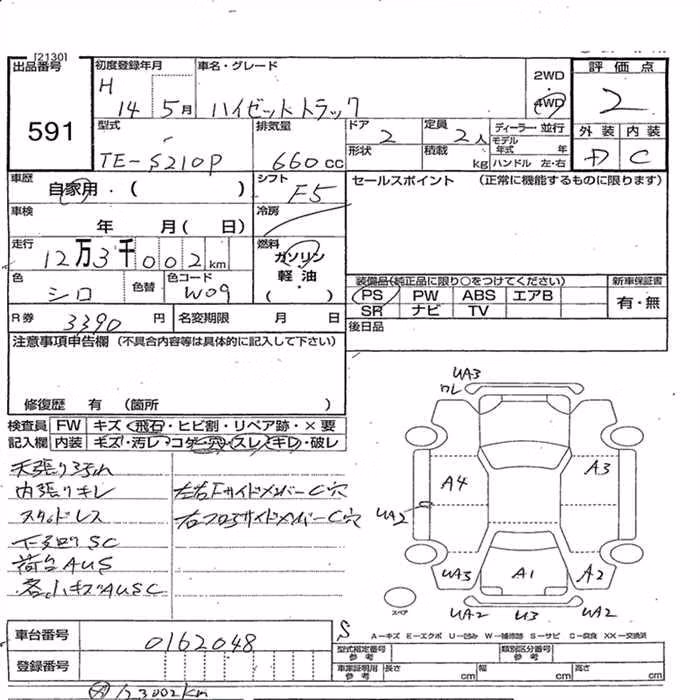 [2130]
出品番号
591
初度登録年月
H 14 5月
車名・グレード
ハイゼットトラック
2WD
4WD
評価点
2
外装 内装
D C
型式
TE-S210P
排気量
660cc
ドア
2
定員
2人
形状
積載 kg
ディーラー・並行
モデル年式 年
ハンドル 左・右
車歴
自家用・( )
シフト
F5
セールスポイント (正常に機能するものに限ります)
車検
年 月( 日)
冷房
走行
12万3千002km
燃料
ガソリン
軽油
( )
色
シロ
色替
色コード
W09
装備品(純正品に限り○をつけてください)
PS PW ABS エアB
SR ナビ TV
新車保証書
有・無
R券 3390円
名変期限 月 日
後日品
注意事項申告欄 (不具合内容等は具体的に記入して下さい)
修復歴 有 (箇所 )
検査員記入欄
FW キズ・飛石・ヒビ割・リペア跡・×要
内装 キズ・汚レ・コゲ・穴・スレ・キレ・破レ
内張りキレ
左右FサイドメンバーC穴
スタッドレス
右フロアサイドメンバーC穴
下廻りSC
荷台AUS
各小キズAUSC
UA3
ワレ
A4
A3
UA2
UA3
A1
A2
UA2
U3
UA2
スペア
S
A-キズ E-エクボ U-凹み W-補修跡 S-サビ C-腐食 XX-交換済
車台番号
0162048
登録番号
型式指定番号 参考
類別区分番号 参考
車庫証明用 参考
長さ cm
幅 cm
高さ cm
123002km